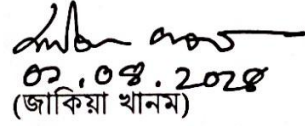 ০১.০৪.২০২৪
(জাকিয়া খানম)